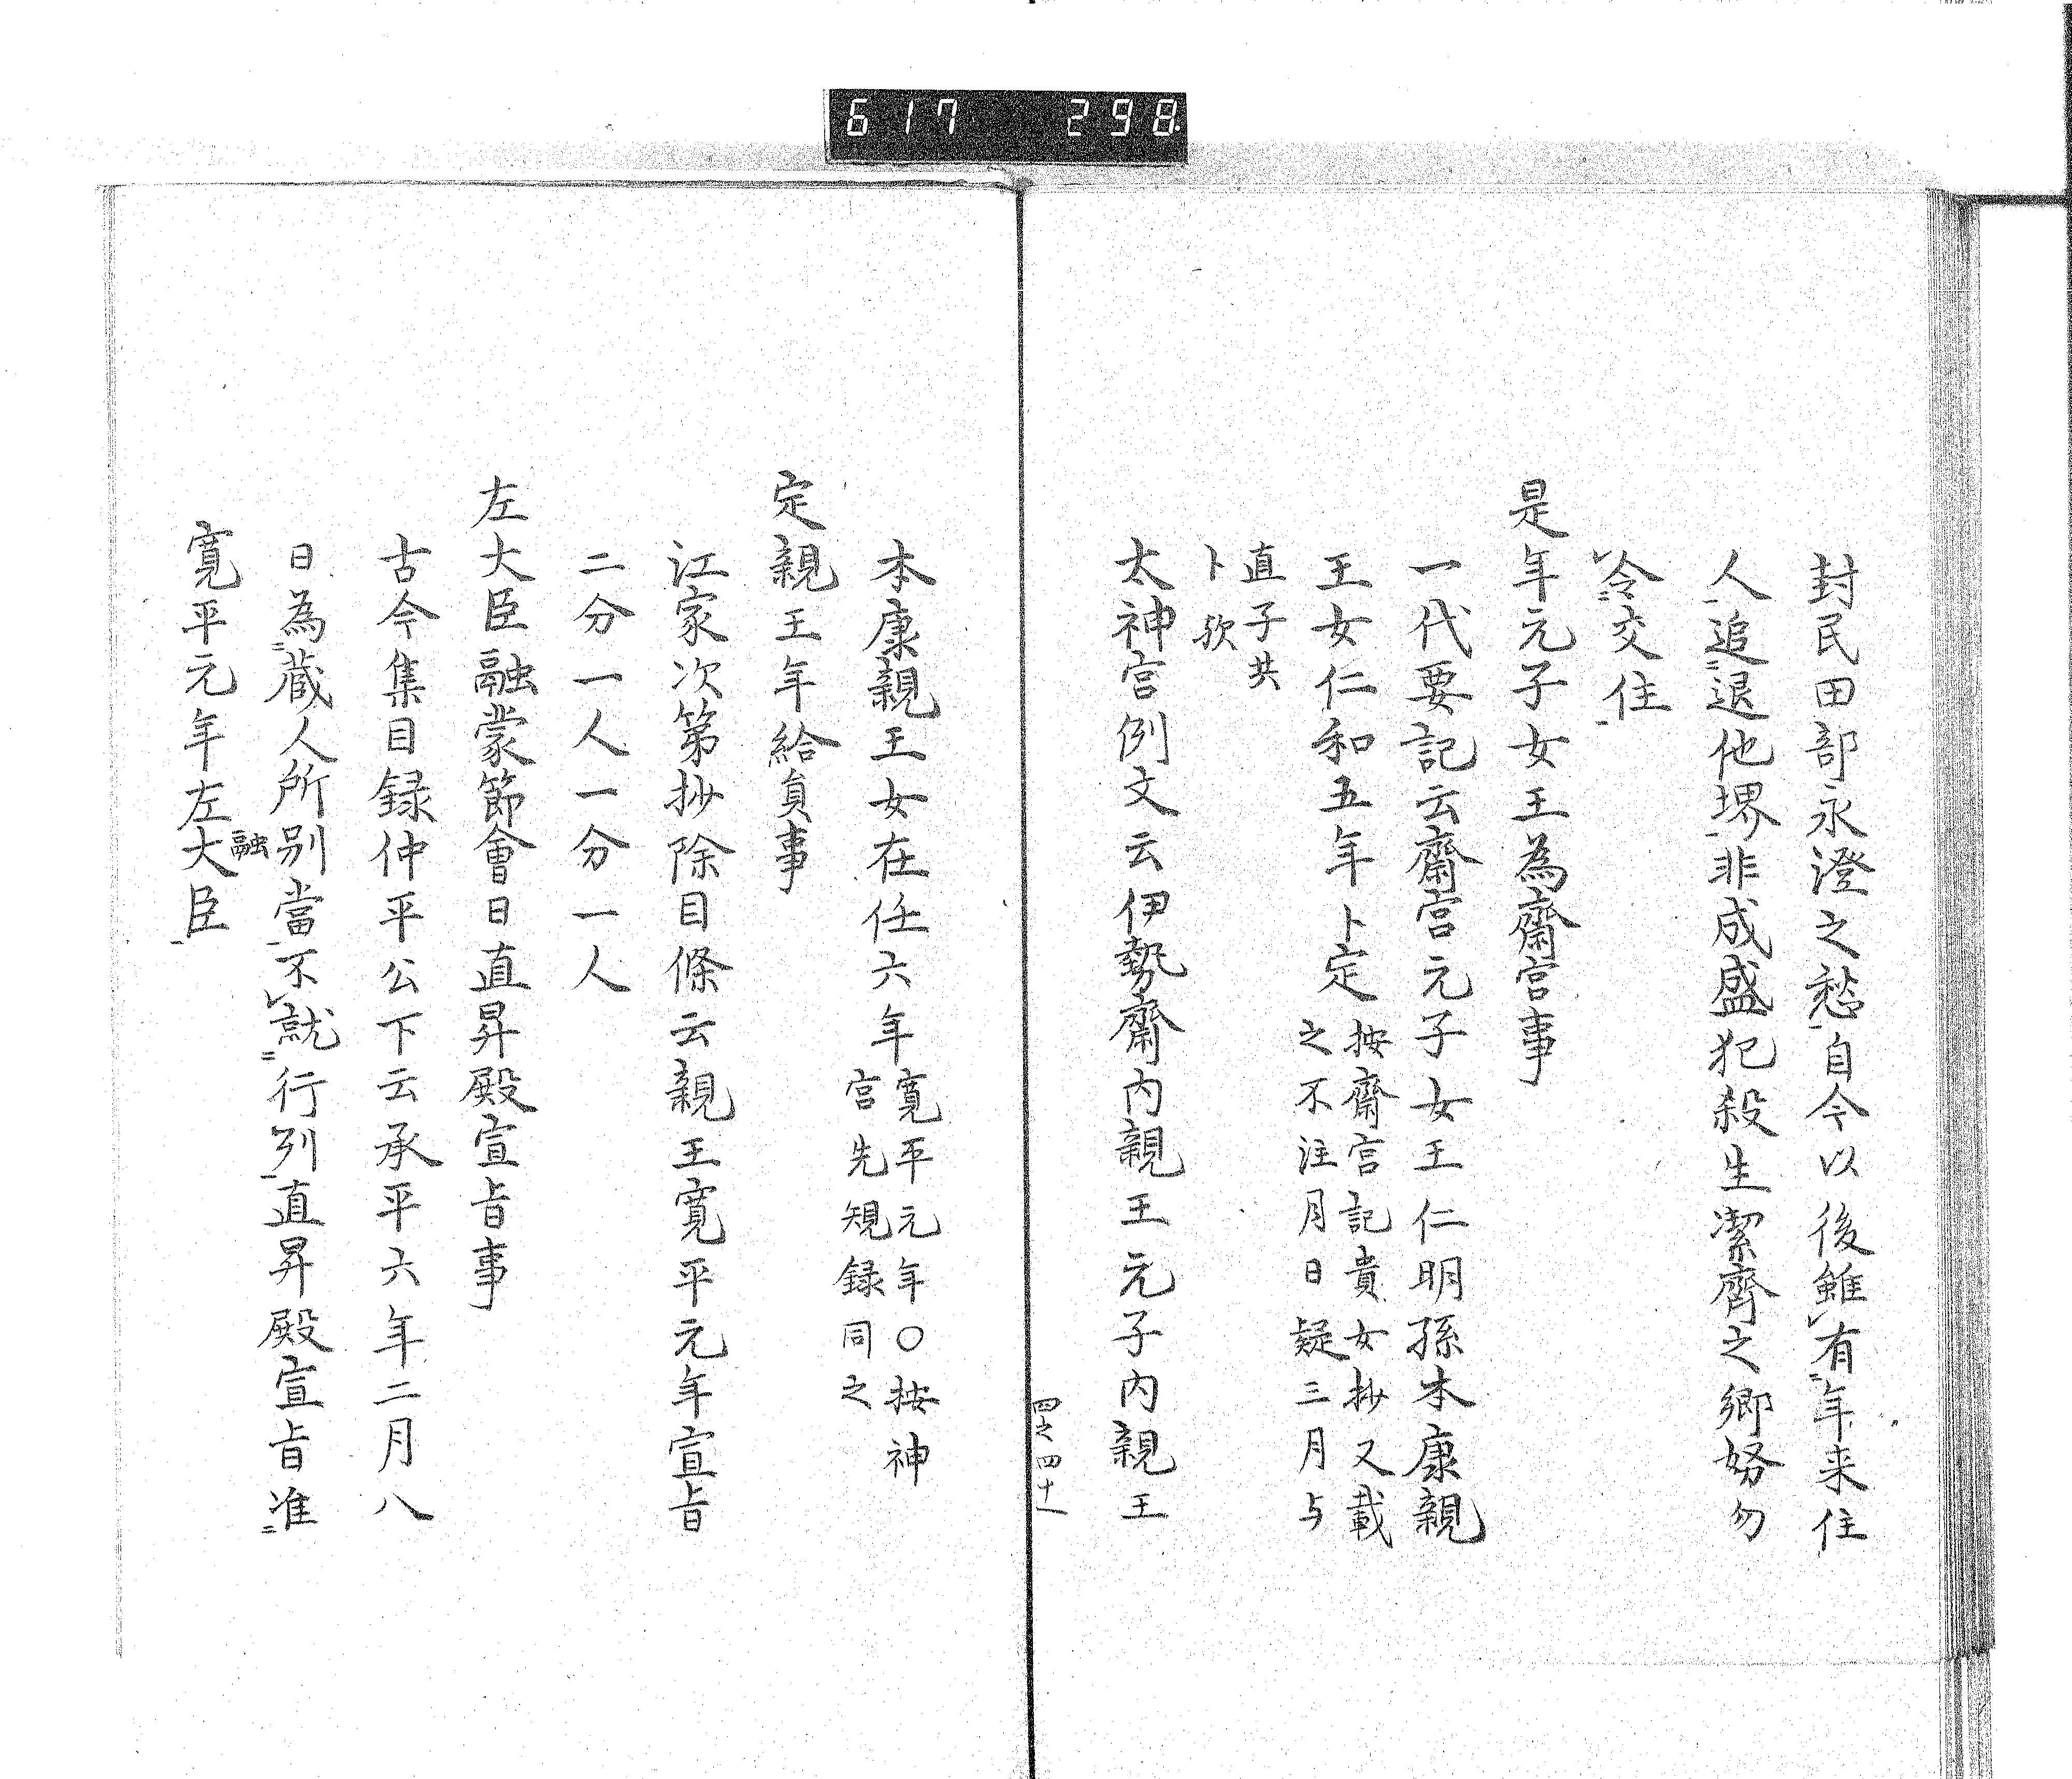 617 298.
封民田部永澄之愁自今以後雖有年来住
人追退他堺非成盛犯殺生潔齊之鄉努勿
令交住
是年元子女王為齋宮事
一代要記云齋宮元子女王仁明孫本康親
王女仁和五年卜定
按齋宮記貴女抄又載
之不注月日疑三月与
直子共
卜欤
太神宮例文云伊勢齋内親王元子内親王
四之四十一
本康親王女在任六年
寛平元年○按神
宮先規録同之
定親王年給員事
江家次第抄除目條云親王寛平元年宣旨
二分一人一分一人
左大臣融蒙節會日直昇殿宣旨事
古今集目録仲平公下云承平六年二月八
日為蔵人所别當不就行列直昇殿宣旨准
寛平元年左大臣
融